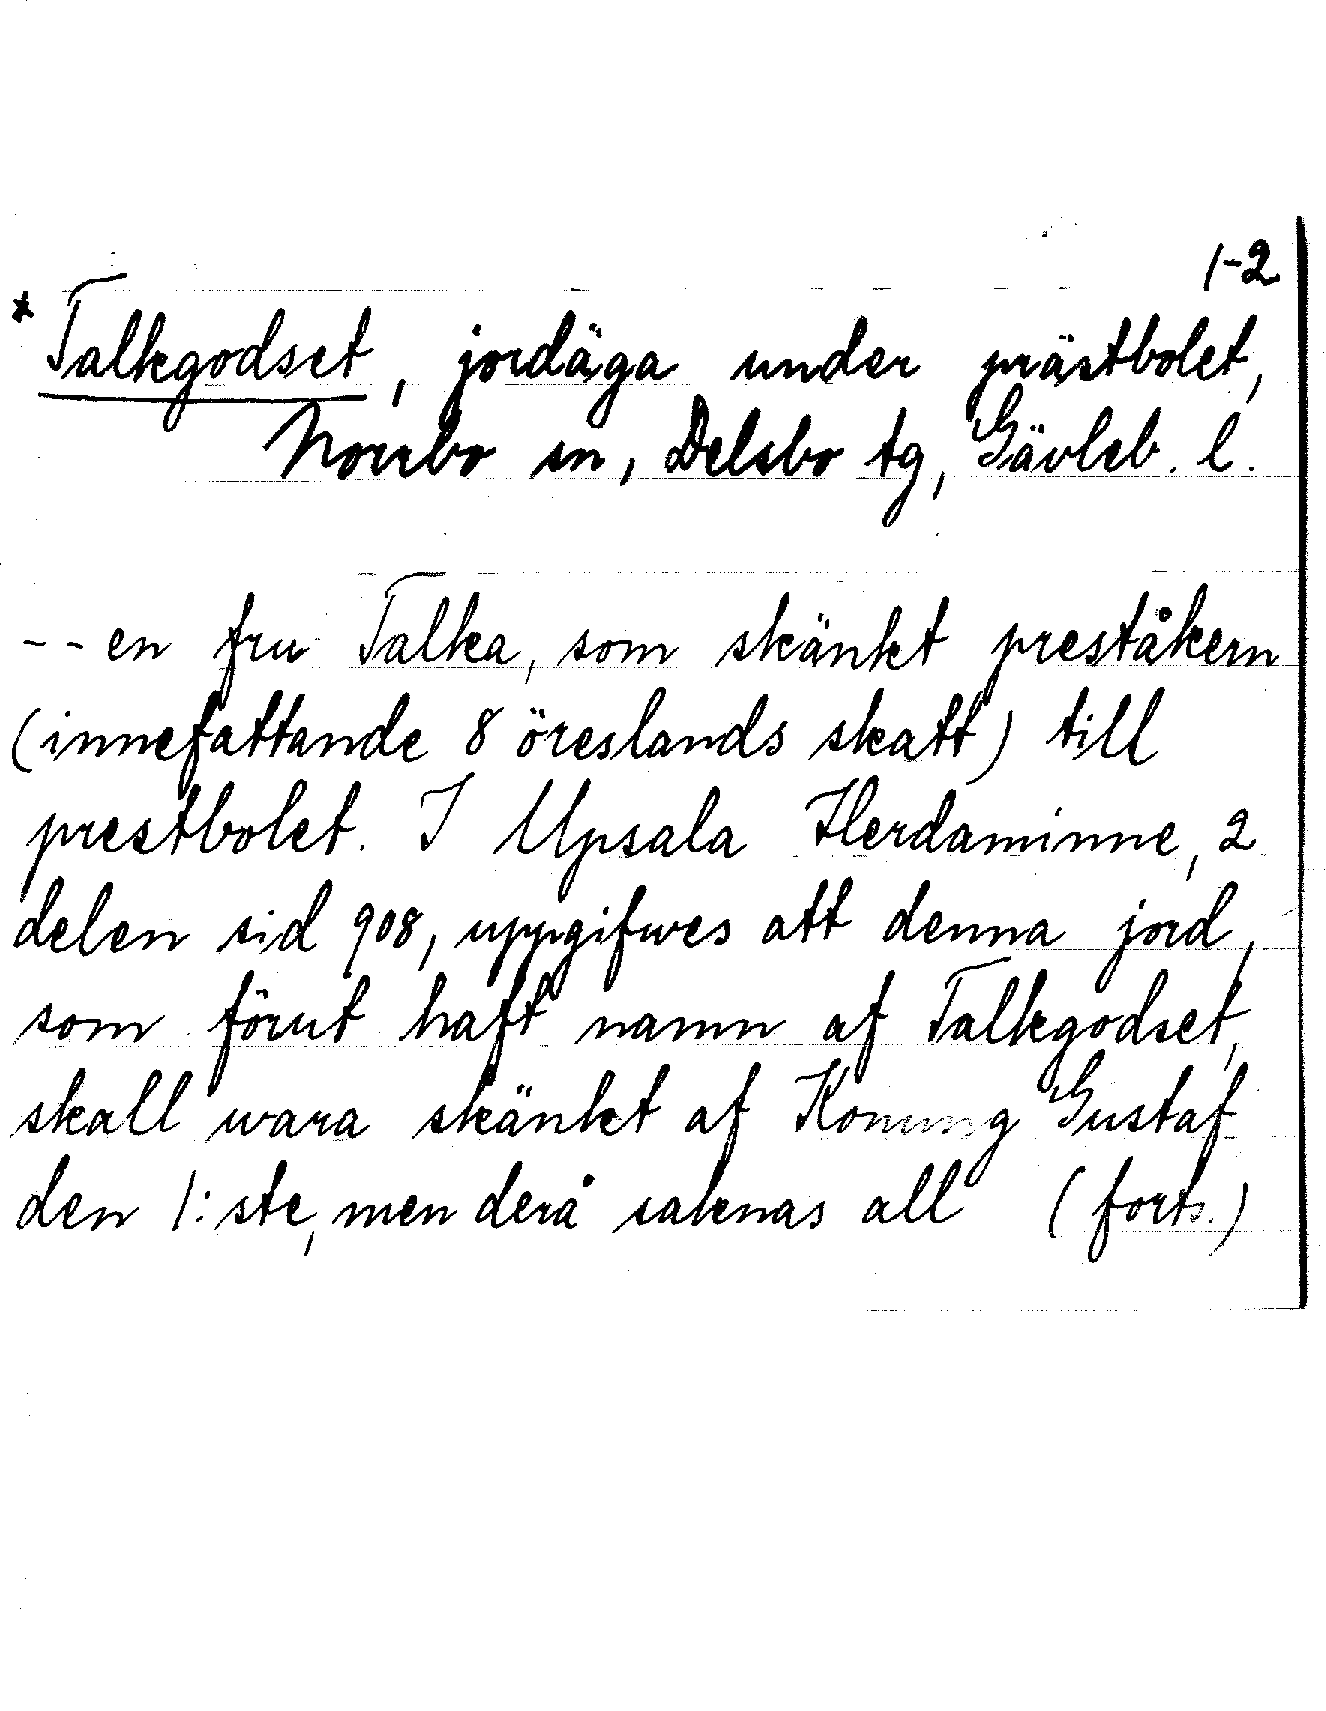 1-2
*Talkgodset, jordäga under prästbolet,
Norrbo sn, Delsbo tg, Gävleb. l.
-- en fru Talka, som skänkt preståkern
(innefattande 8 öreslands skatt) till
prestbolet. I Upsala Herdaminne, 2
delen sid 908, uppgifwes att denna jord,
som förut haft namn af Talkgodset,
skall wara skänkt af Konung Gustaf
den 1:ste, men derå saknas all (forts.)